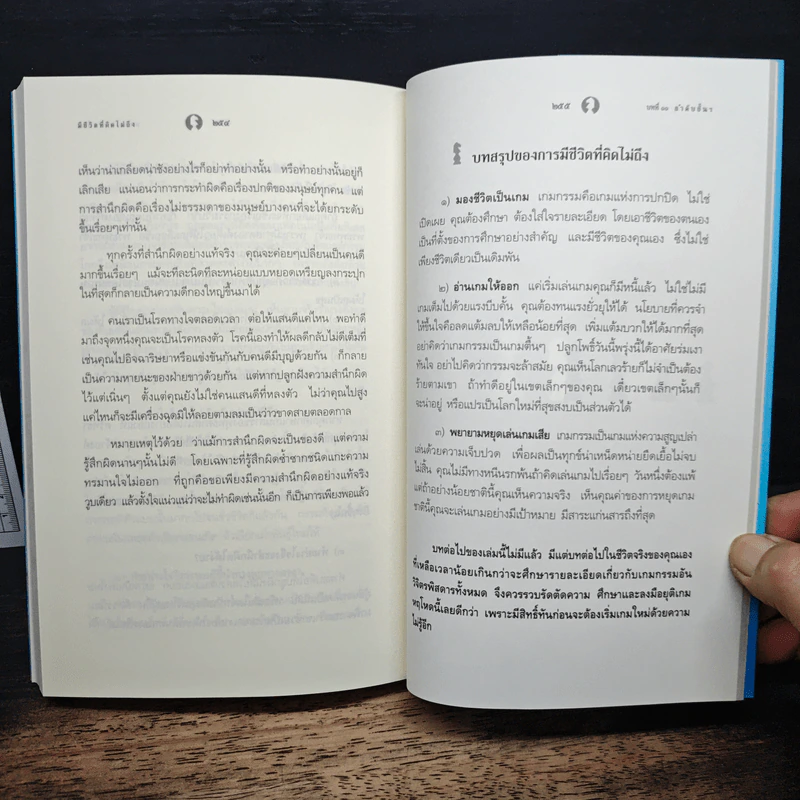 มีชีวิตที่คิดไม่ถึง
๒๕๔
เห็นว่าน่าเกลียดน่าชังอย่างไรก็อย่าทำอย่างนั้น หรือทำอย่างนั้นอยู่ก็
เลิกเสีย แน่นอนว่าการกระทำผิดคือเรื่องปกติของมนุษย์ทุกคน แต่
การสำนึกผิดคือเรื่องไม่ธรรมดาของมนุษย์บางคนที่จะได้ยกระดับ
ขึ้นเรื่อยๆเท่านั้น
ทุกครั้งที่สำนึกผิดอย่างแท้จริง คุณจะค่อยๆเปลี่ยนเป็นคนดี
มากขึ้นเรื่อยๆ แม้จะทีละนิดทีละหน่อยแบบหยอดเหรียญลงกระปุก
ในที่สุดก็กลายเป็นความดีกองใหญ่ขึ้นมาได้
คนเราเป็นโรคทางใจตลอดเวลา ต่อให้แสนดีแค่ไหน พอทำดี
มาถึงจุดหนึ่งคุณจะเป็นโรคหลงตัว โรคนี้เองทำให้ผลดีกลับไม่ดีเต็มที่
เช่นคุณไปอิจฉาริษยาหรือแข่งขันกันกับคนดีมีบุญด้วยกัน ก็กลาย
เป็นความหายนะของฝ่ายขาวด้วยกัน แต่หากปลูกฝังความสำนึกผิด
ไว้แต่เนิ่นๆ ตั้งแต่คุณยังไม่ใช่คนแสนดีที่หลงตัว ไม่ว่าคุณไปสูง
แค่ไหนก็จะมีเครื่องฉุดมิให้ลอยตามลมเป็นว่าวขาดสายตลอดกาล
หมายเหตุไว้ด้วย ว่าแม้การสำนึกผิดจะเป็นของดี แต่ความ
รู้สึกผิดนานๆนั้นไม่ดี โดยเฉพาะที่รู้สึกผิดซ้ำซากชนิดแกะความ
ทรมานใจไม่ออก ที่ถูกคือขอเพียงมีความสำนึกผิดอย่างแท้จริง
วูบเดียว แล้วตั้งใจแน่วแน่ว่าจะไม่ทำผิดเช่นนั้นอีก ก็เป็นการเพียงพอแล้ว
๒๕๕
บทที่ ๑๓
บทสรุปของการมีชีวิตที่คิดไม่ถึง
๑) มองชีวิตเป็นเกม เกมกรรมคือเกมแห่งการปกปิด ไม่ใช่
เปิดเผย คุณต้องศึกษา ต้องใส่ใจรายละเอียด โดยเอาชีวิตของตนเอง
เป็นที่ตั้งของการศึกษาอย่างสำคัญ และมีชีวิตของคุณเอง ซึ่งไม่ใช่
เพียงชีวิตเดียวเป็นเดิมพัน
๒) อ่านเกมให้ออก แค่เริ่มเล่นเกมคุณก็มีหนี้แล้ว ไม่ใช่ไม่มี
เกมเต็มไปด้วยแรงบีบคั้น คุณต้องทนแรงยั่วยุให้ได้ นโยบายที่ควรจำ
ให้ขึ้นใจคือลดแต้มลบให้เหลือน้อยที่สุด เพิ่มแต้มบวกให้ได้มากที่สุด
อย่าคิดว่าเกมกรรมเป็นเกมตื้นๆ ปลูกโพธิ์วันนี้พรุ่งนี้ได้อาศัยร่มเงา
ทันใจ อย่าไปคิดว่ากรรมจะล้าสมัย คุณเห็นโลกเลวร้ายก็ไม่จำเป็นต้อง
ร้ายตามเขา ถ้าทำดีอยู่ในเขตเล็กๆของคุณ เดี๋ยวเขตเล็กๆนั้นก็
จะน่าอยู่ หรือแปรเป็นโลกใหม่ที่สุขสงบเป็นส่วนตัวได้
๓) พยายามหยุดเล่นเกมเสีย เกมกรรมเป็นเกมแห่งความสูญเปล่า
เล่นด้วยความเจ็บปวด เพื่อผลเป็นทุกข์น่าเหน็ดหน่ายยืดเยื้อไม่จบ
ไม่สิ้น คุณไม่มีทางหนีนรกพ้นถ้าคิดเล่นเกมไปเรื่อยๆ วันหนึ่งต้องแพ้
แต่ถ้าอย่างน้อยชาตินี้คุณเห็นความจริง เห็นคุณค่าของการหยุดเกม
ชาตินี้คุณจะเล่นเกมอย่างมีเป้าหมาย มีสาระแก่นสารถึงที่สุด
บทต่อไปของเล่มนี้ไม่มีแล้ว มีแต่บทต่อไปในชีวิตจริงของคุณเอง
ที่เหลือเวลาน้อยเกินกว่าจะศึกษารายละเอียดเกี่ยวกับเกมกรรมอัน
วิจิตรพิสดารทั้งหมด จึงควรรวบรัดตัดความ ศึกษาและลงมือยุติเกม
หฤโหดนี้เลยดีกว่า เพราะมีสิทธิ์ทันก่อนจะต้องเริ่มเกมใหม่ด้วยความ
ไม่รู้อีก